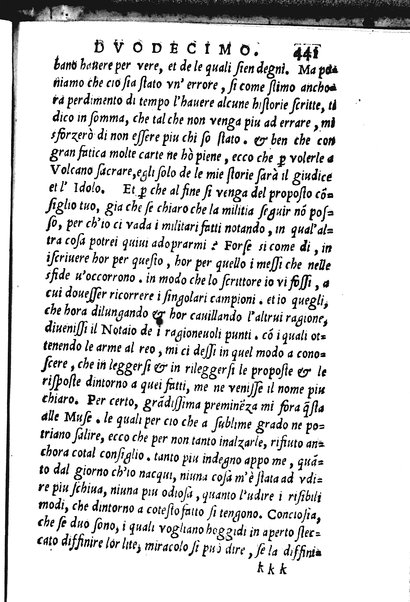 DVODECIMO. 441
bano hauere per vere, et de le quali sien degni. Ma po
niamo che cio sia stato vn' errore, si come stimo ancho
ra perdimento di tempo l'hauere alcune historie scritte, ti
dico in somma, che tal che non venga piu ad errare, mi
sforzerò di non essere piu chi so stato. & ben che con
gran fatica molte carte ne hò piene, ecco che ꝑ volerle a
Volcano sacrare, egli solo de le mie storie sarà il giudice
et l' Idolo. Et ꝑ che al fine si venga del proposto cõ-
siglio tuo, gia che se chiaro che la militia seguir nõ pos-
so, per ch'io ci vada i militari fatti notando, in qual'al-
tra cosa potrei quiui adoprarmi? Forse si come di, in
iscriuere hor per questo, hor per quello i messi che nelle
sfide u'occorrono. in modo che lo scrittore io vi fossi, a
cui douesser ricorrere i singolari campioni. et io quegli,
che hora dilungando & hor cauillando l'altrui ragione,
diuenissi il Notaio de i ragioneuoli punti. cõ i quali ot-
tenendo le arme al reo, mi ci dessi in quel modo a cono-
scere, che in leggersi & in rileggersi le proposte & le
risposte dintorno a quei fatti, me ne venisse il nome piu
chiaro. Per certo, grãdissima preminẽza mi fora q̃sta
alle Muse. le quali per cio che a sublime grado ne po-
triano salire, ecco che per non tanto inalzarle, rifiuto an-
chora cotal consiglio. tanto piu indegno appo me, quã-
to dal giorno ch'io nacqui, niuna cosa m'è stata ad vdi-
re piu schiua, niuna piu odiosa, quanto l'udire i risibili
modi, che dintorno a cotesto fatto si tengono. Conciosia,
che se duo sono, i quali vogliano heggidi in aperto stec-
cato diffinire lor lite, miracolo si può dire, se la diffini-
k k k